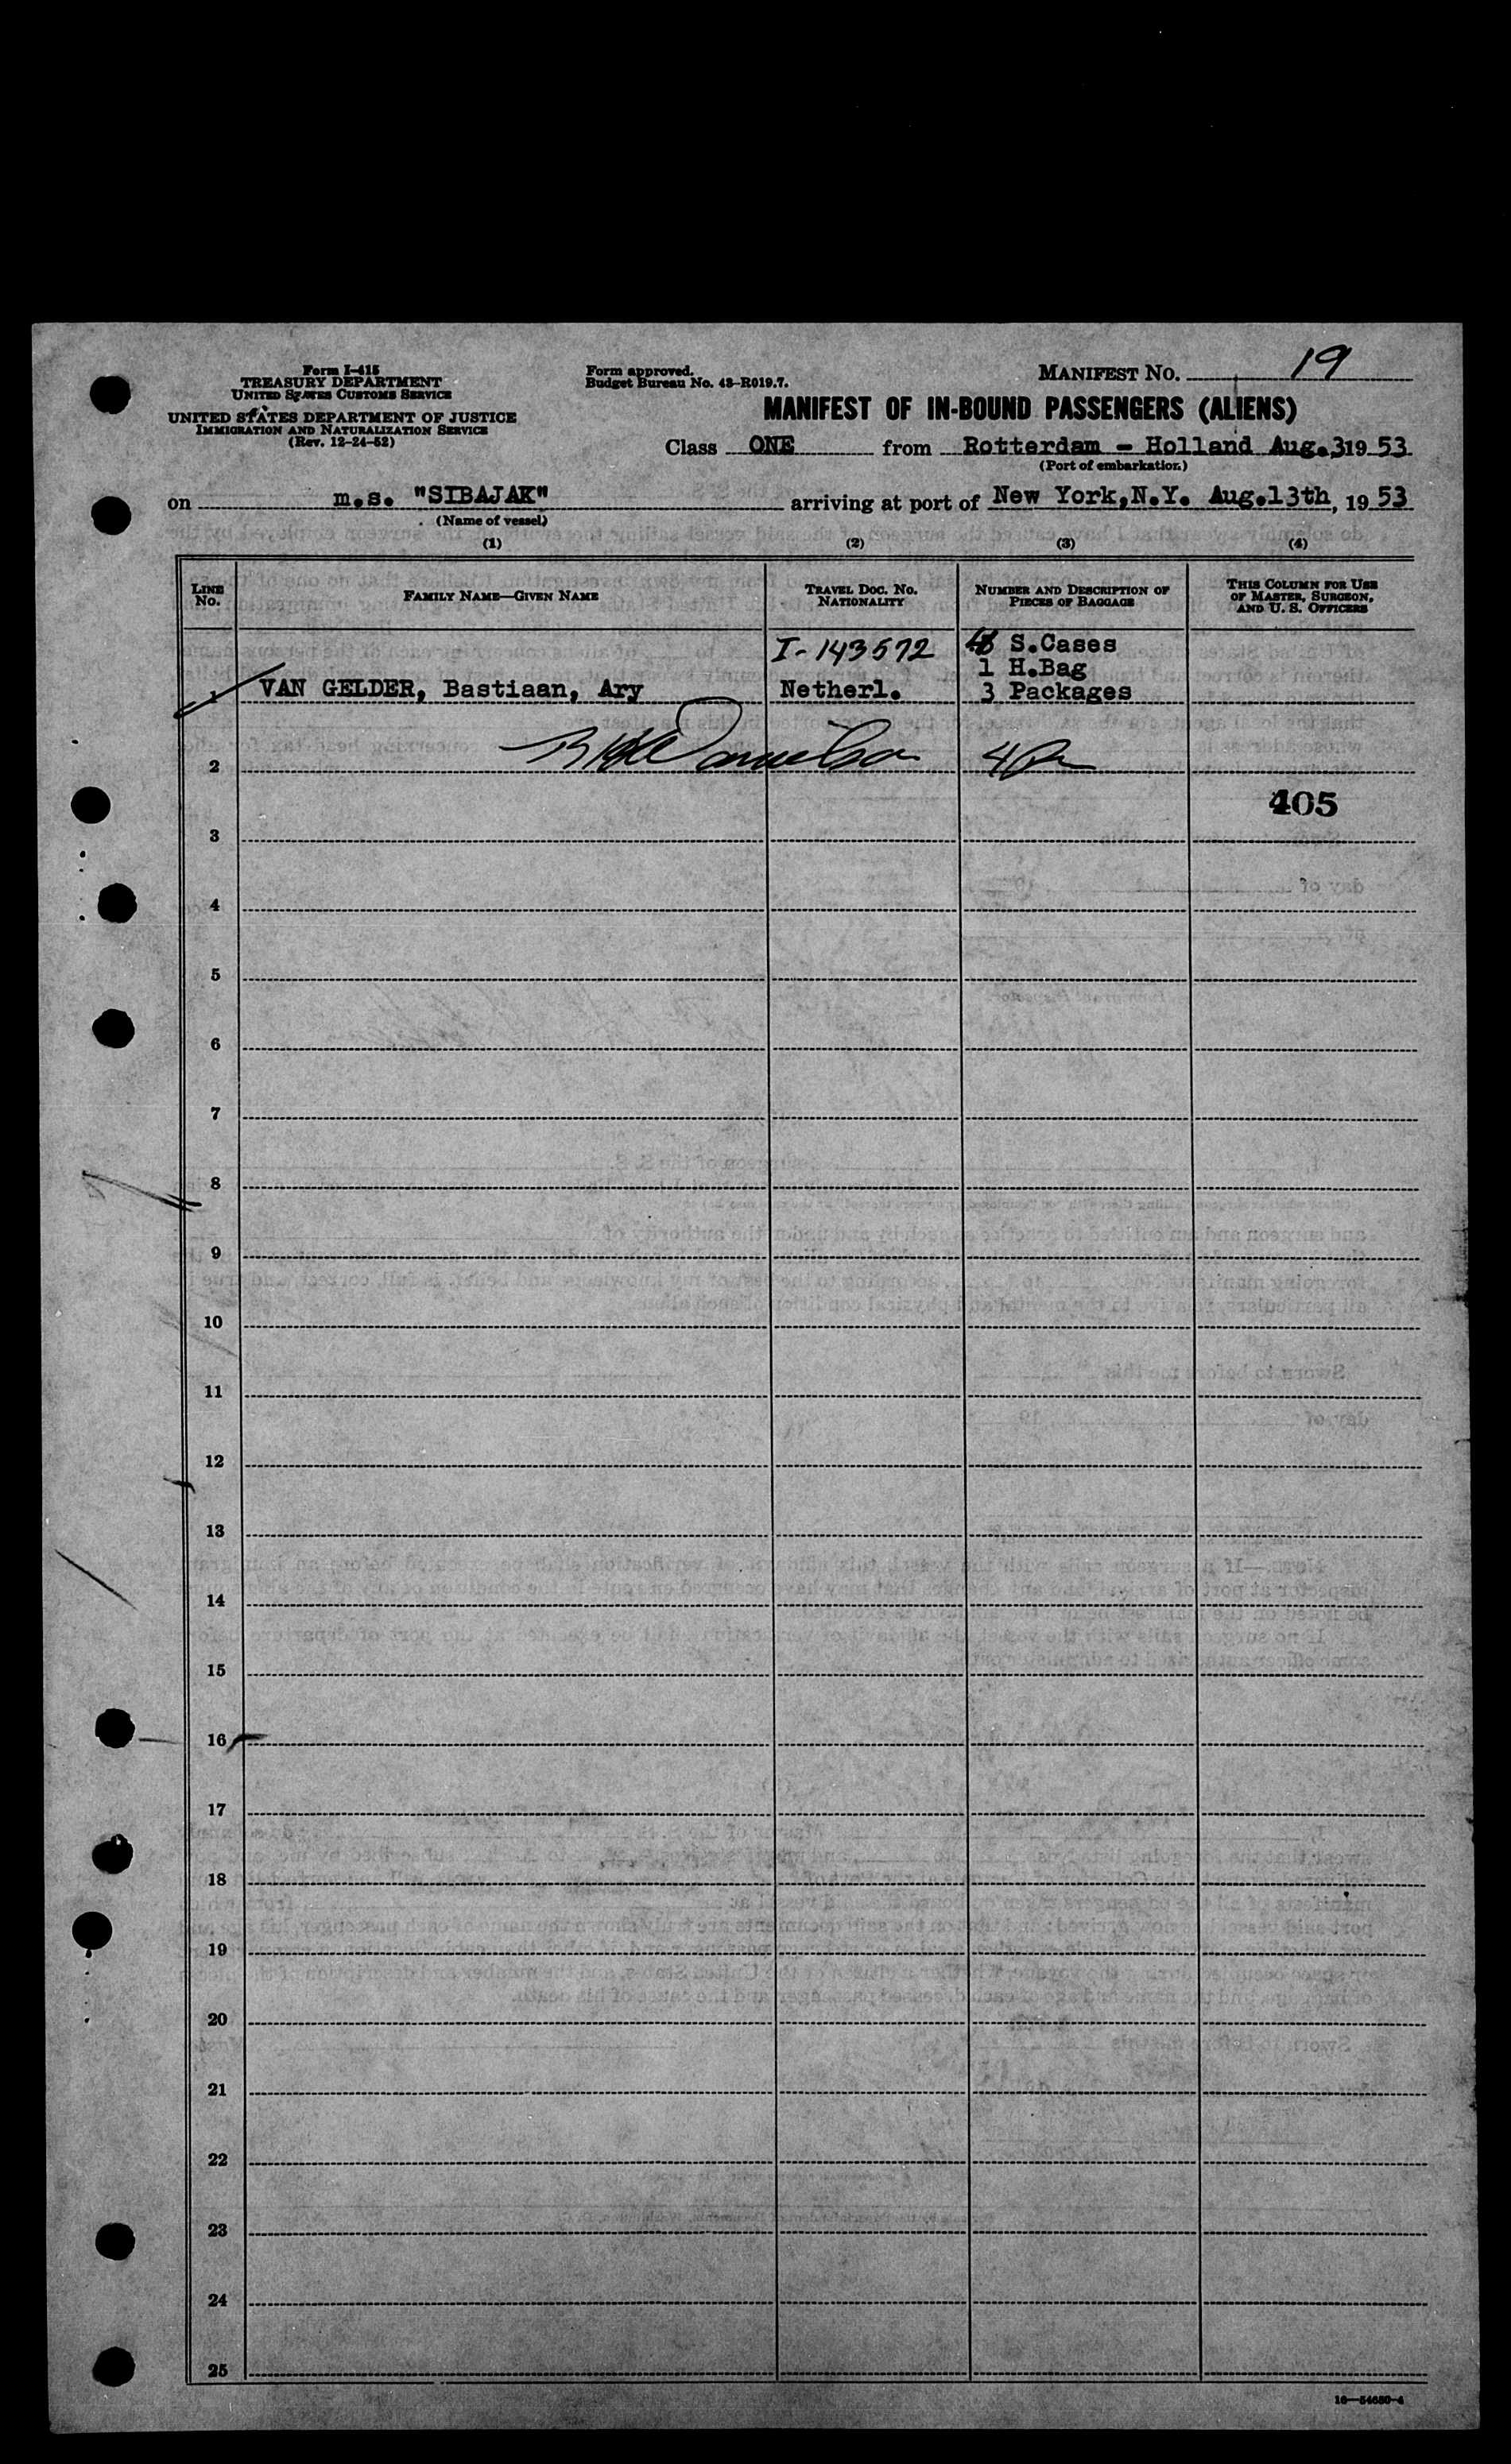 Form I-415
TREASURY DEPARTMENT
UNITED STATES CUSTOMS SERVICE
UNITED STATES DEPARTMENT OF JUSTICE
IMMIGRATION AND NATURALIZATION SERVICE
(Rev. 12-24-52)
Form approved.
Budget Bureau No. 43-R019.7.
MANIFEST NO. 19
MANIFEST OF IN-BOUND PASSENGERS (ALIENS)
Class ONE from Rotterdam - Holland Aug.3 19 53
(Port of embarkation)
on m.s. "SIBAJAK" arriving at port of New York,N.Y. Aug.13th, 19 53
(Name of vessel)
(1) (2) (3) (4)
LINE No. FAMILY NAME—GIVEN NAME TRAVEL DOC. NO. NATIONALITY NUMBER AND DESCRIPTION OF PIECES OF BAGGAGE THIS COLUMN FOR USE OF MASTER, SURGEON, AND U. S. OFFICERS
I-143572 S.Cases
1 H.Bag
1 VAN GELDER, Bastiaan, Ary Netherl. 3 Packages
2
405
3
4
5
6
7
8
9
10
11
12
13
14
15
16
17
18
19
20
21
22
23
24
25
16—54630-4